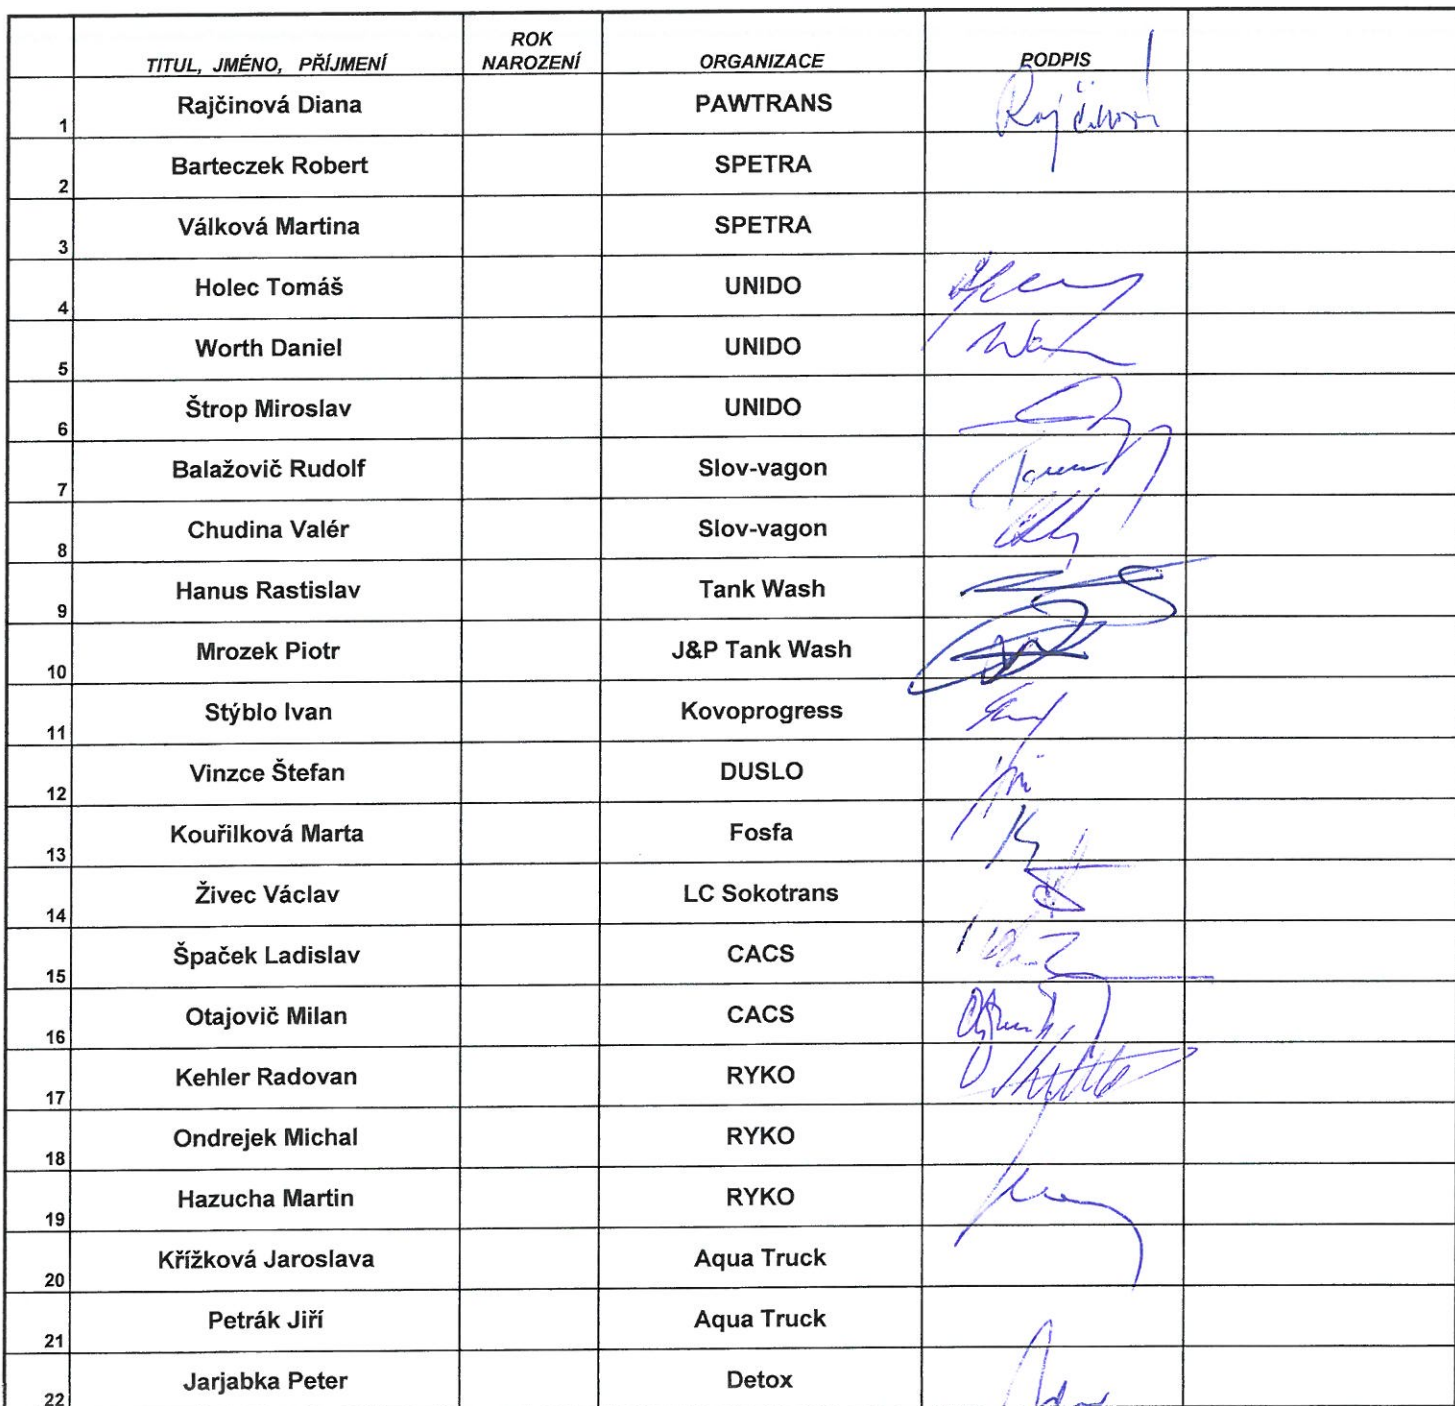 TITUL, JMÉNO, PŘÍJMENÍ ROK NAROZENÍ ORGANIZACE PODPIS
1 Rajčinová Diana PAWTRANS Rajčinová
2 Barteczek Robert SPETRA
3 Válková Martina SPETRA
4 Holec Tomáš UNIDO
5 Worth Daniel UNIDO
6 Štrop Miroslav UNIDO
7 Balažovič Rudolf Slov-vagon
8 Chudina Valér Slov-vagon
9 Hanus Rastislav Tank Wash
10 Mrozek Piotr J&P Tank Wash
11 Stýblo Ivan Kovoprogress
12 Vinzce Štefan DUSLO
13 Kouřilková Marta Fosfa
14 Živec Václav LC Sokotrans
15 Špaček Ladislav CACS
16 Otajovič Milan CACS
17 Kehler Radovan RYKO
18 Ondrejek Michal RYKO
19 Hazucha Martin RYKO
20 Křížková Jaroslava Aqua Truck
21 Petrák Jiří Aqua Truck
22 Jarjabka Peter Detox